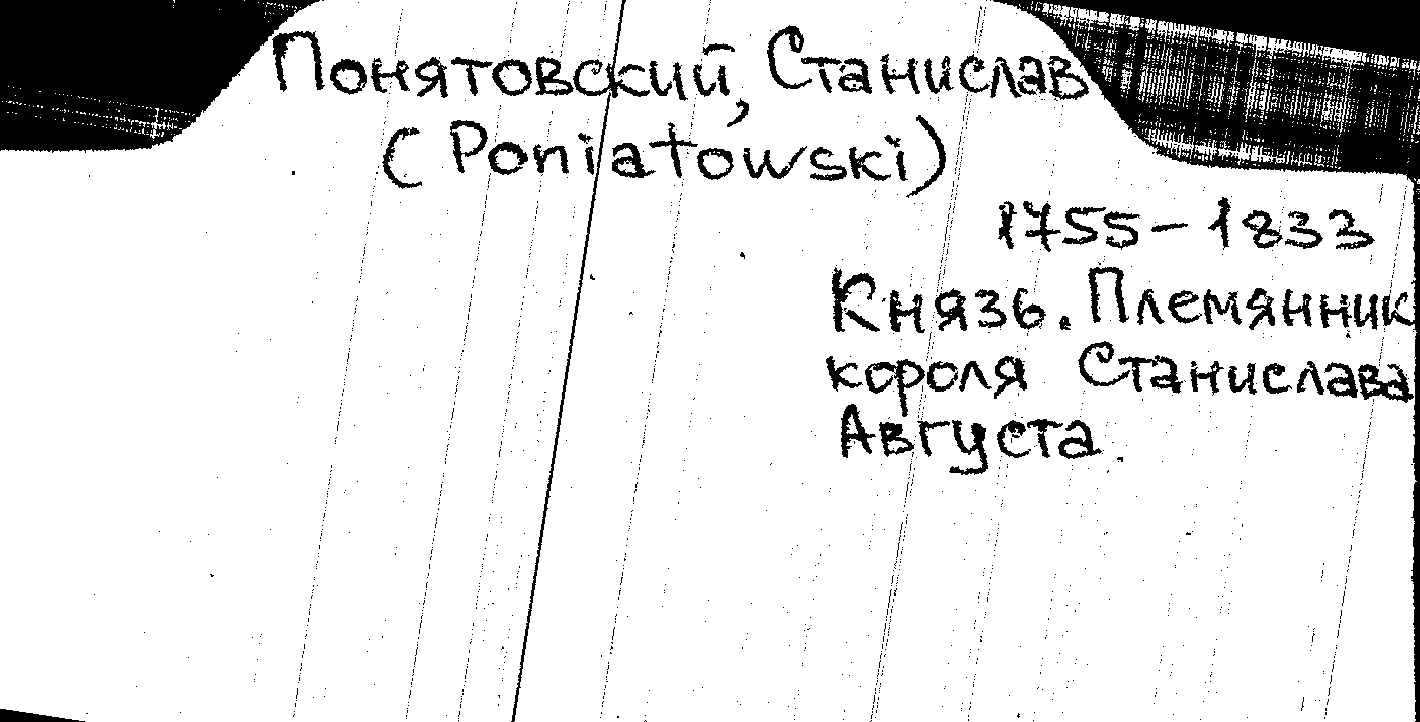 Понятовский, Станислав
(Poniatowski)
1755-1833
Князь. Племянник
короля Станислава
Августа.